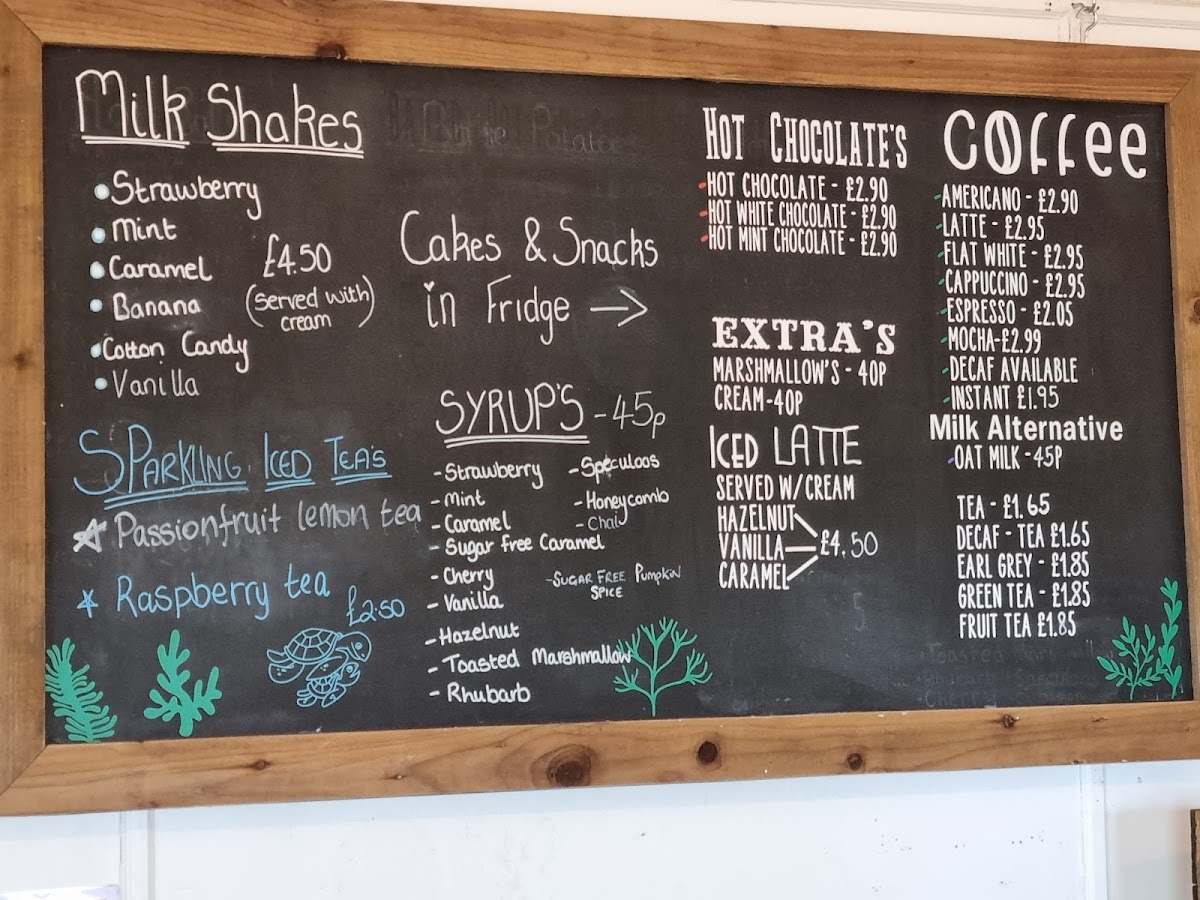 Milk Shakes
Strawberry
Mint
Caramel
Banana
Cotton Candy
Vanilla
£4.50
(Served with
cream)
SParkling Iced Tea's
Passionfruit lemon tea
Raspberry tea
£2.50
Cakes & Snacks
in Fridge →
SYRUP'S - 45p
- Strawberry
- Mint
- Caramel
- Sugar free Caramel
- Cherry
- Vanilla
- Hazelnut
- Toasted Marshmallow
- Rhubarb
- Speculoos
- Honeycomb
- Chai
- SUGAR FREE PUMPKIN
SPICE
HOT CHOCOLATE'S
HOT CHOCOLATE - £2.90
HOT WHITE CHOCOLATE - £2.90
HOT MINT CHOCOLATE - £2.90
EXTRA'S
MARSHMALLOW'S - 40P
CREAM-40P
ICED LATTE
SERVED W/CREAM
HAZELNUT
VANILLA
CARAMEL
£4.50
Coffee
AMERICANO - £2.90
LATTE - £2.95
FLAT WHITE - £2.95
CAPPUCCINO - £2.95
ESPRESSO - £2.05
MOCHA-£2.99
DECAF AVAILABLE
INSTANT £1.95
Milk Alternative
OAT MILK - 45P
TEA - £1.65
DECAF - TEA £1.65
EARL GREY - £1.85
GREEN TEA - £1.85
FRUIT TEA £1.85